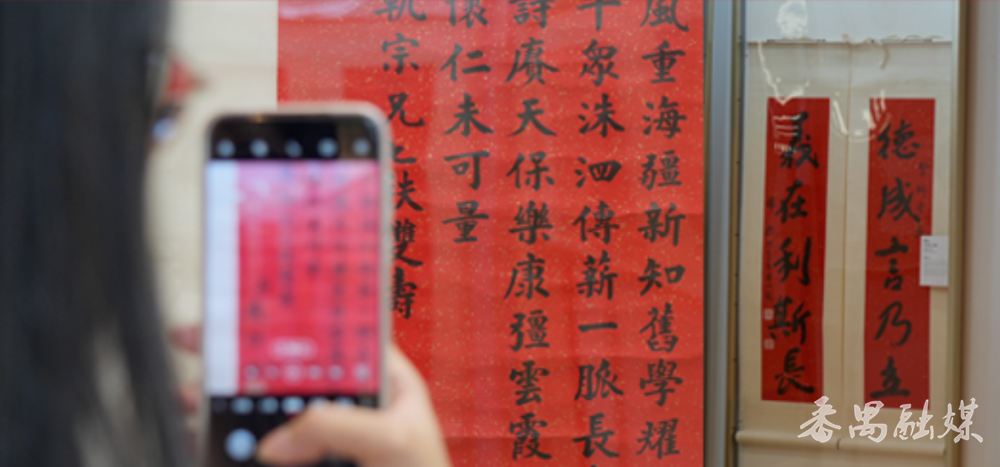 風重海疆新知舊學耀
千眾洙泗傳薪一脈長
詩賡天保樂康彊雲霞
懷仁未可量
宗兄
雙壽
德成言乃立
義在利斯長
番禺融媒